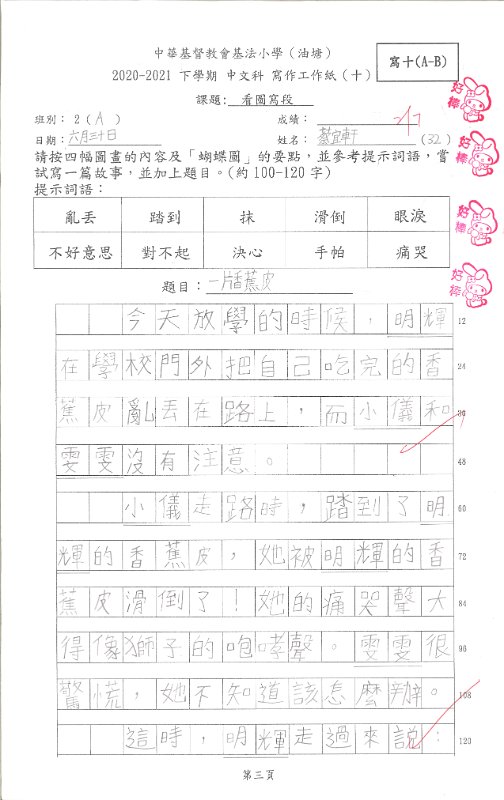 中華基督教會基法小學（油塘）
2020-2021 下學期 中文科 寫作工作紙（十）
寫十(A-B)
課題：看圖寫段
班別：2（A）
成績：
日期：六月三十日
姓名：宜軒(32)
請按四幅圖畫的內容及「蝴蝶圖」的要點，並參考提示詞語，嘗
試寫一篇故事，並加上題目。(約100-120字)
提示詞語：
亂丟 踏到 抹 滑倒 眼淚
不好意思 對不起 決心 手帕 痛哭
題目：一片香蕉皮
今天放學的時候，明輝 12
在學校門外把自己吃完的香 24
蕉皮亂丟在路上，而小儀和 36
雯雯沒有注意。 48
小儀走路時，踏到了明 60
輝的香蕉皮，她被明輝的香 72
蕉皮滑倒了！她的痛哭聲大 84
得像獅子的咆哮聲。雯雯很 96
驚慌，她不知道該怎麼辦。 108
這時，明輝走過來說： 120
第三頁
好棒
好棒
好棒
好棒